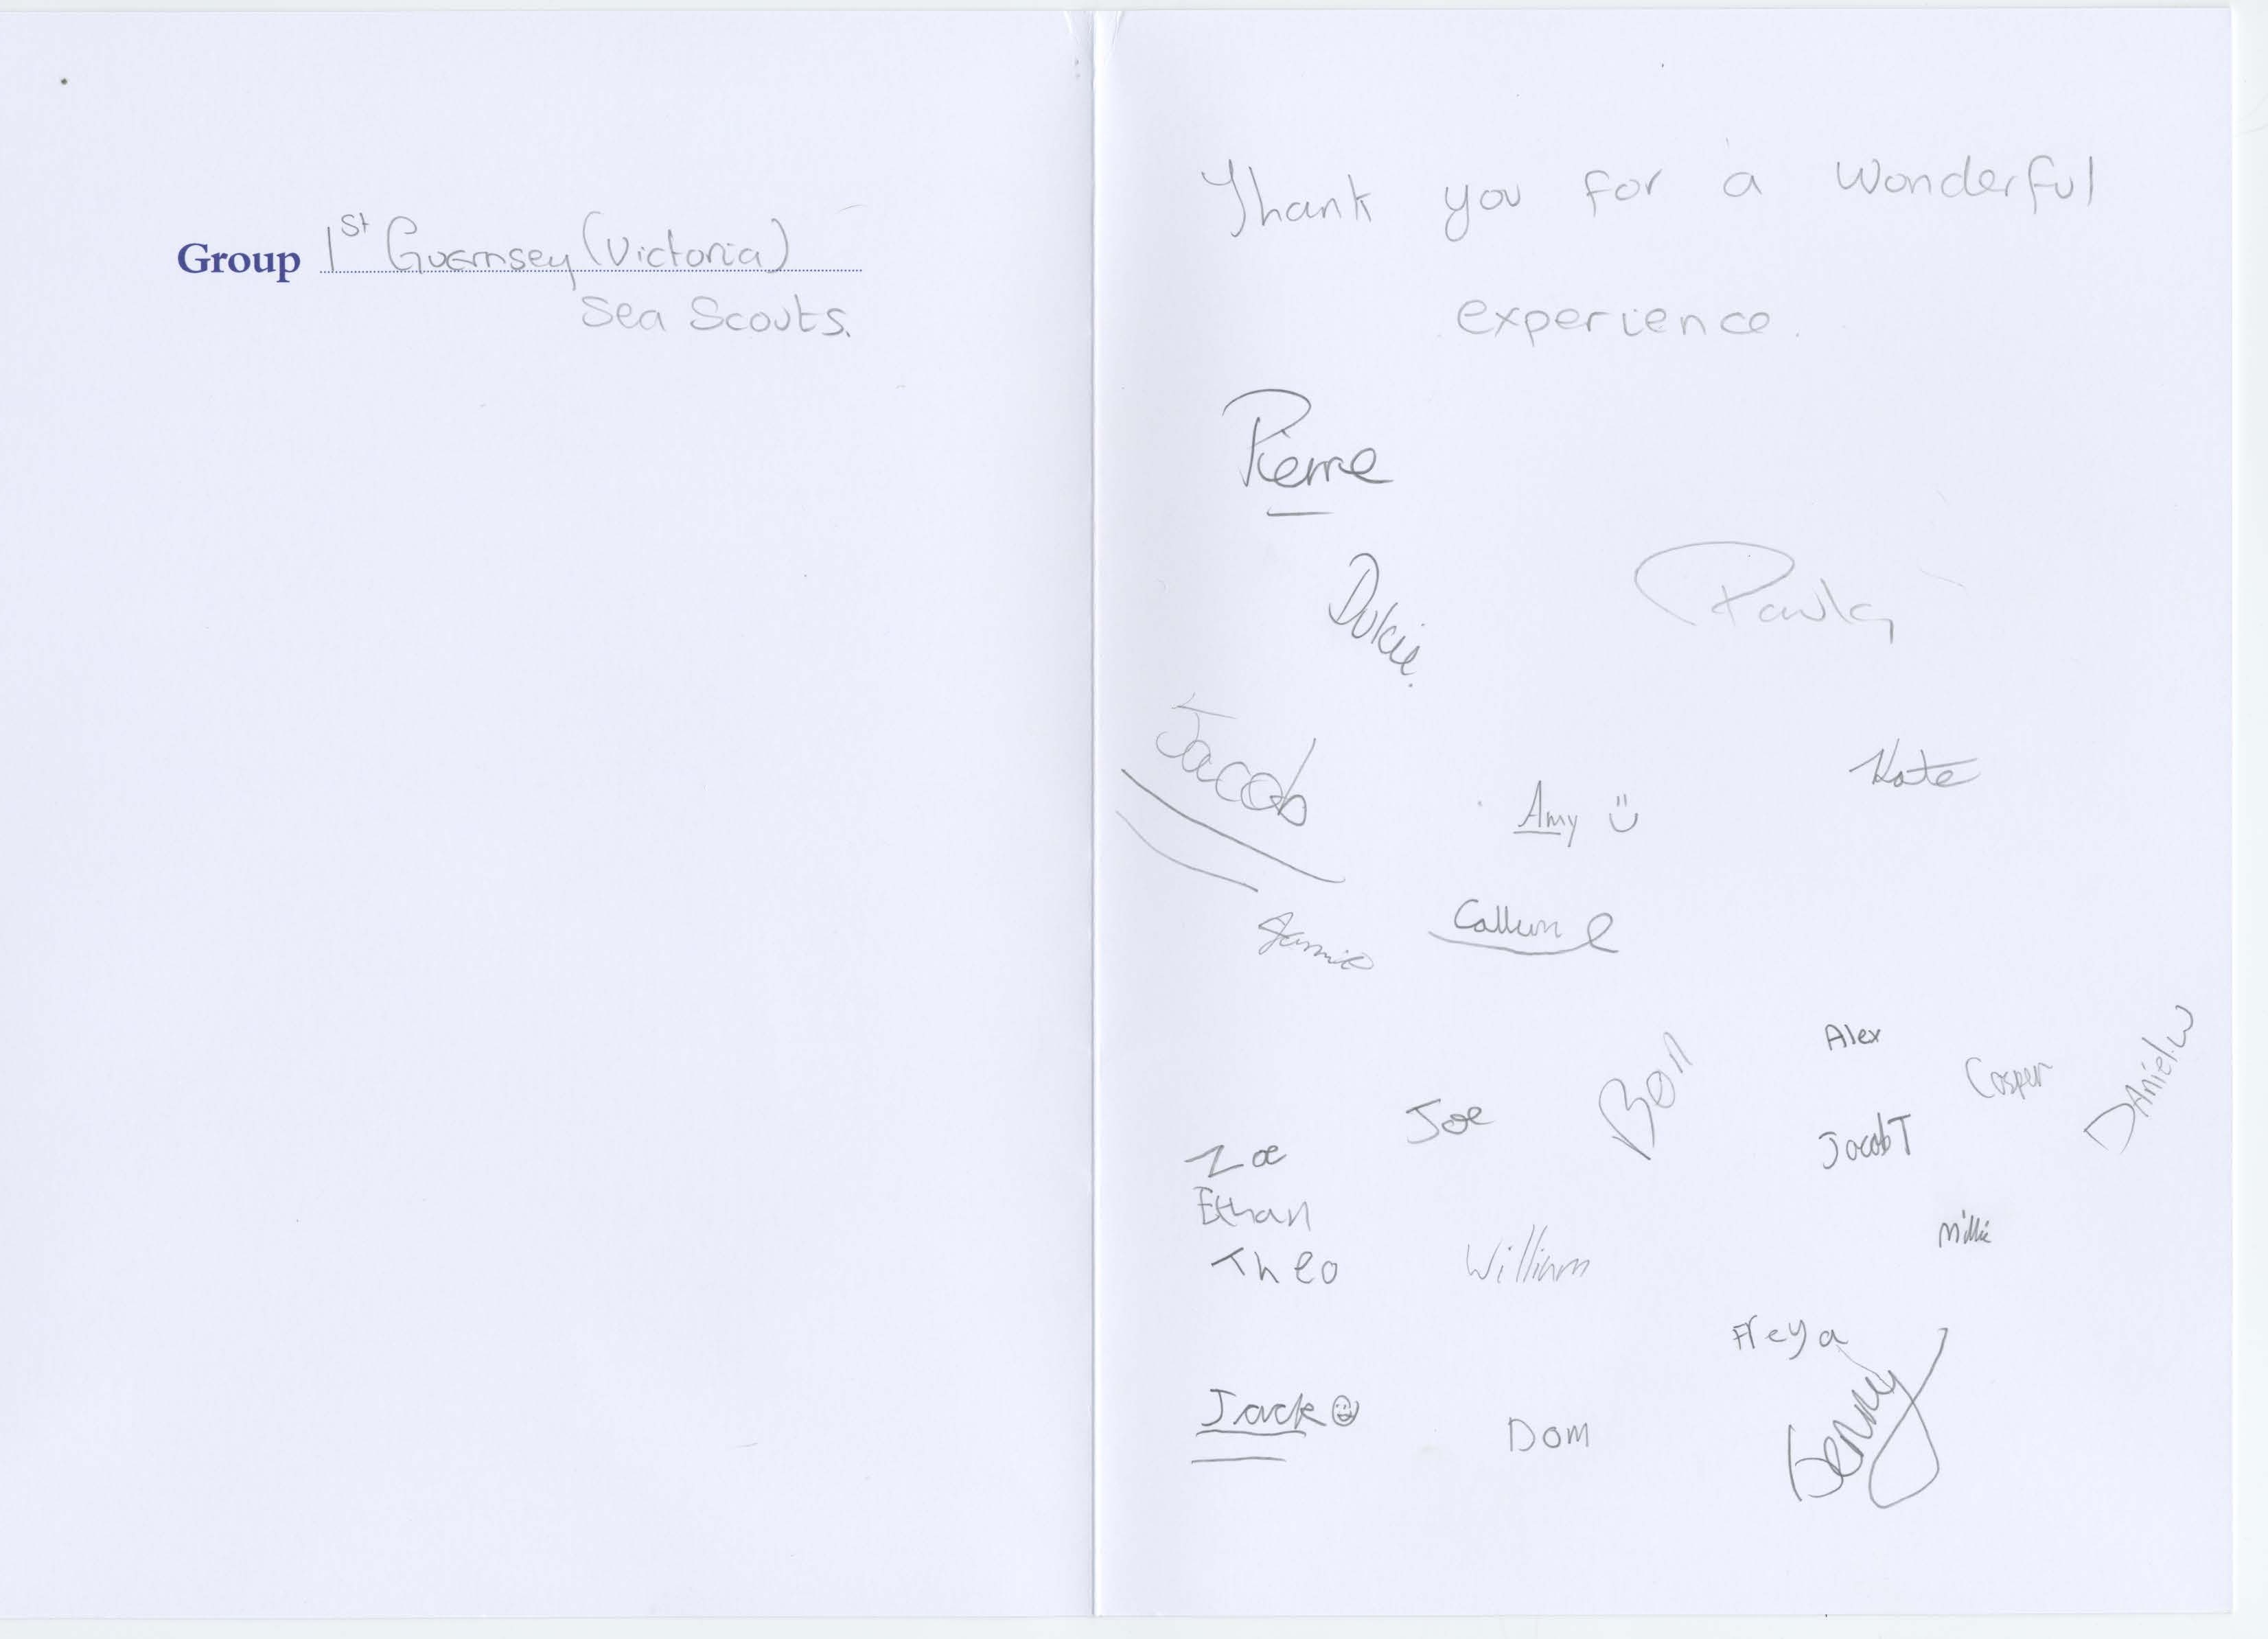 Group 1st Guernsey (Victoria)
Sea Scouts.
Thank you for a wonderful
experience.
Pierre
Dulcie.
Jacob
Kate
Amy
Callum
Jamie
Alex
Casper
Daniel.W
Joe
Ben
JacobT
Zoe
Ethan
Theo
William
Millie
Freya
Jack
Dom